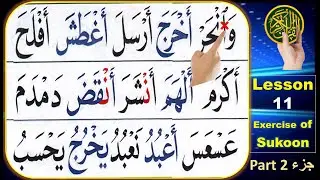 وَانْحَرْ أَخْرَجَ أَرْسَلَ أَغْطَشَ أَفْلَحَ
أَكْرَمَ أَلْهَمَ أَنْشَرَ أَنْقَضَ دَمْدَمَ
عَسْعَسَ أَعْبُدُ نَعْبُدُ يَخْرُجُ يَحْسَبُ
Lesson
11
Exercise of
Sukoon
Part 2 جزء